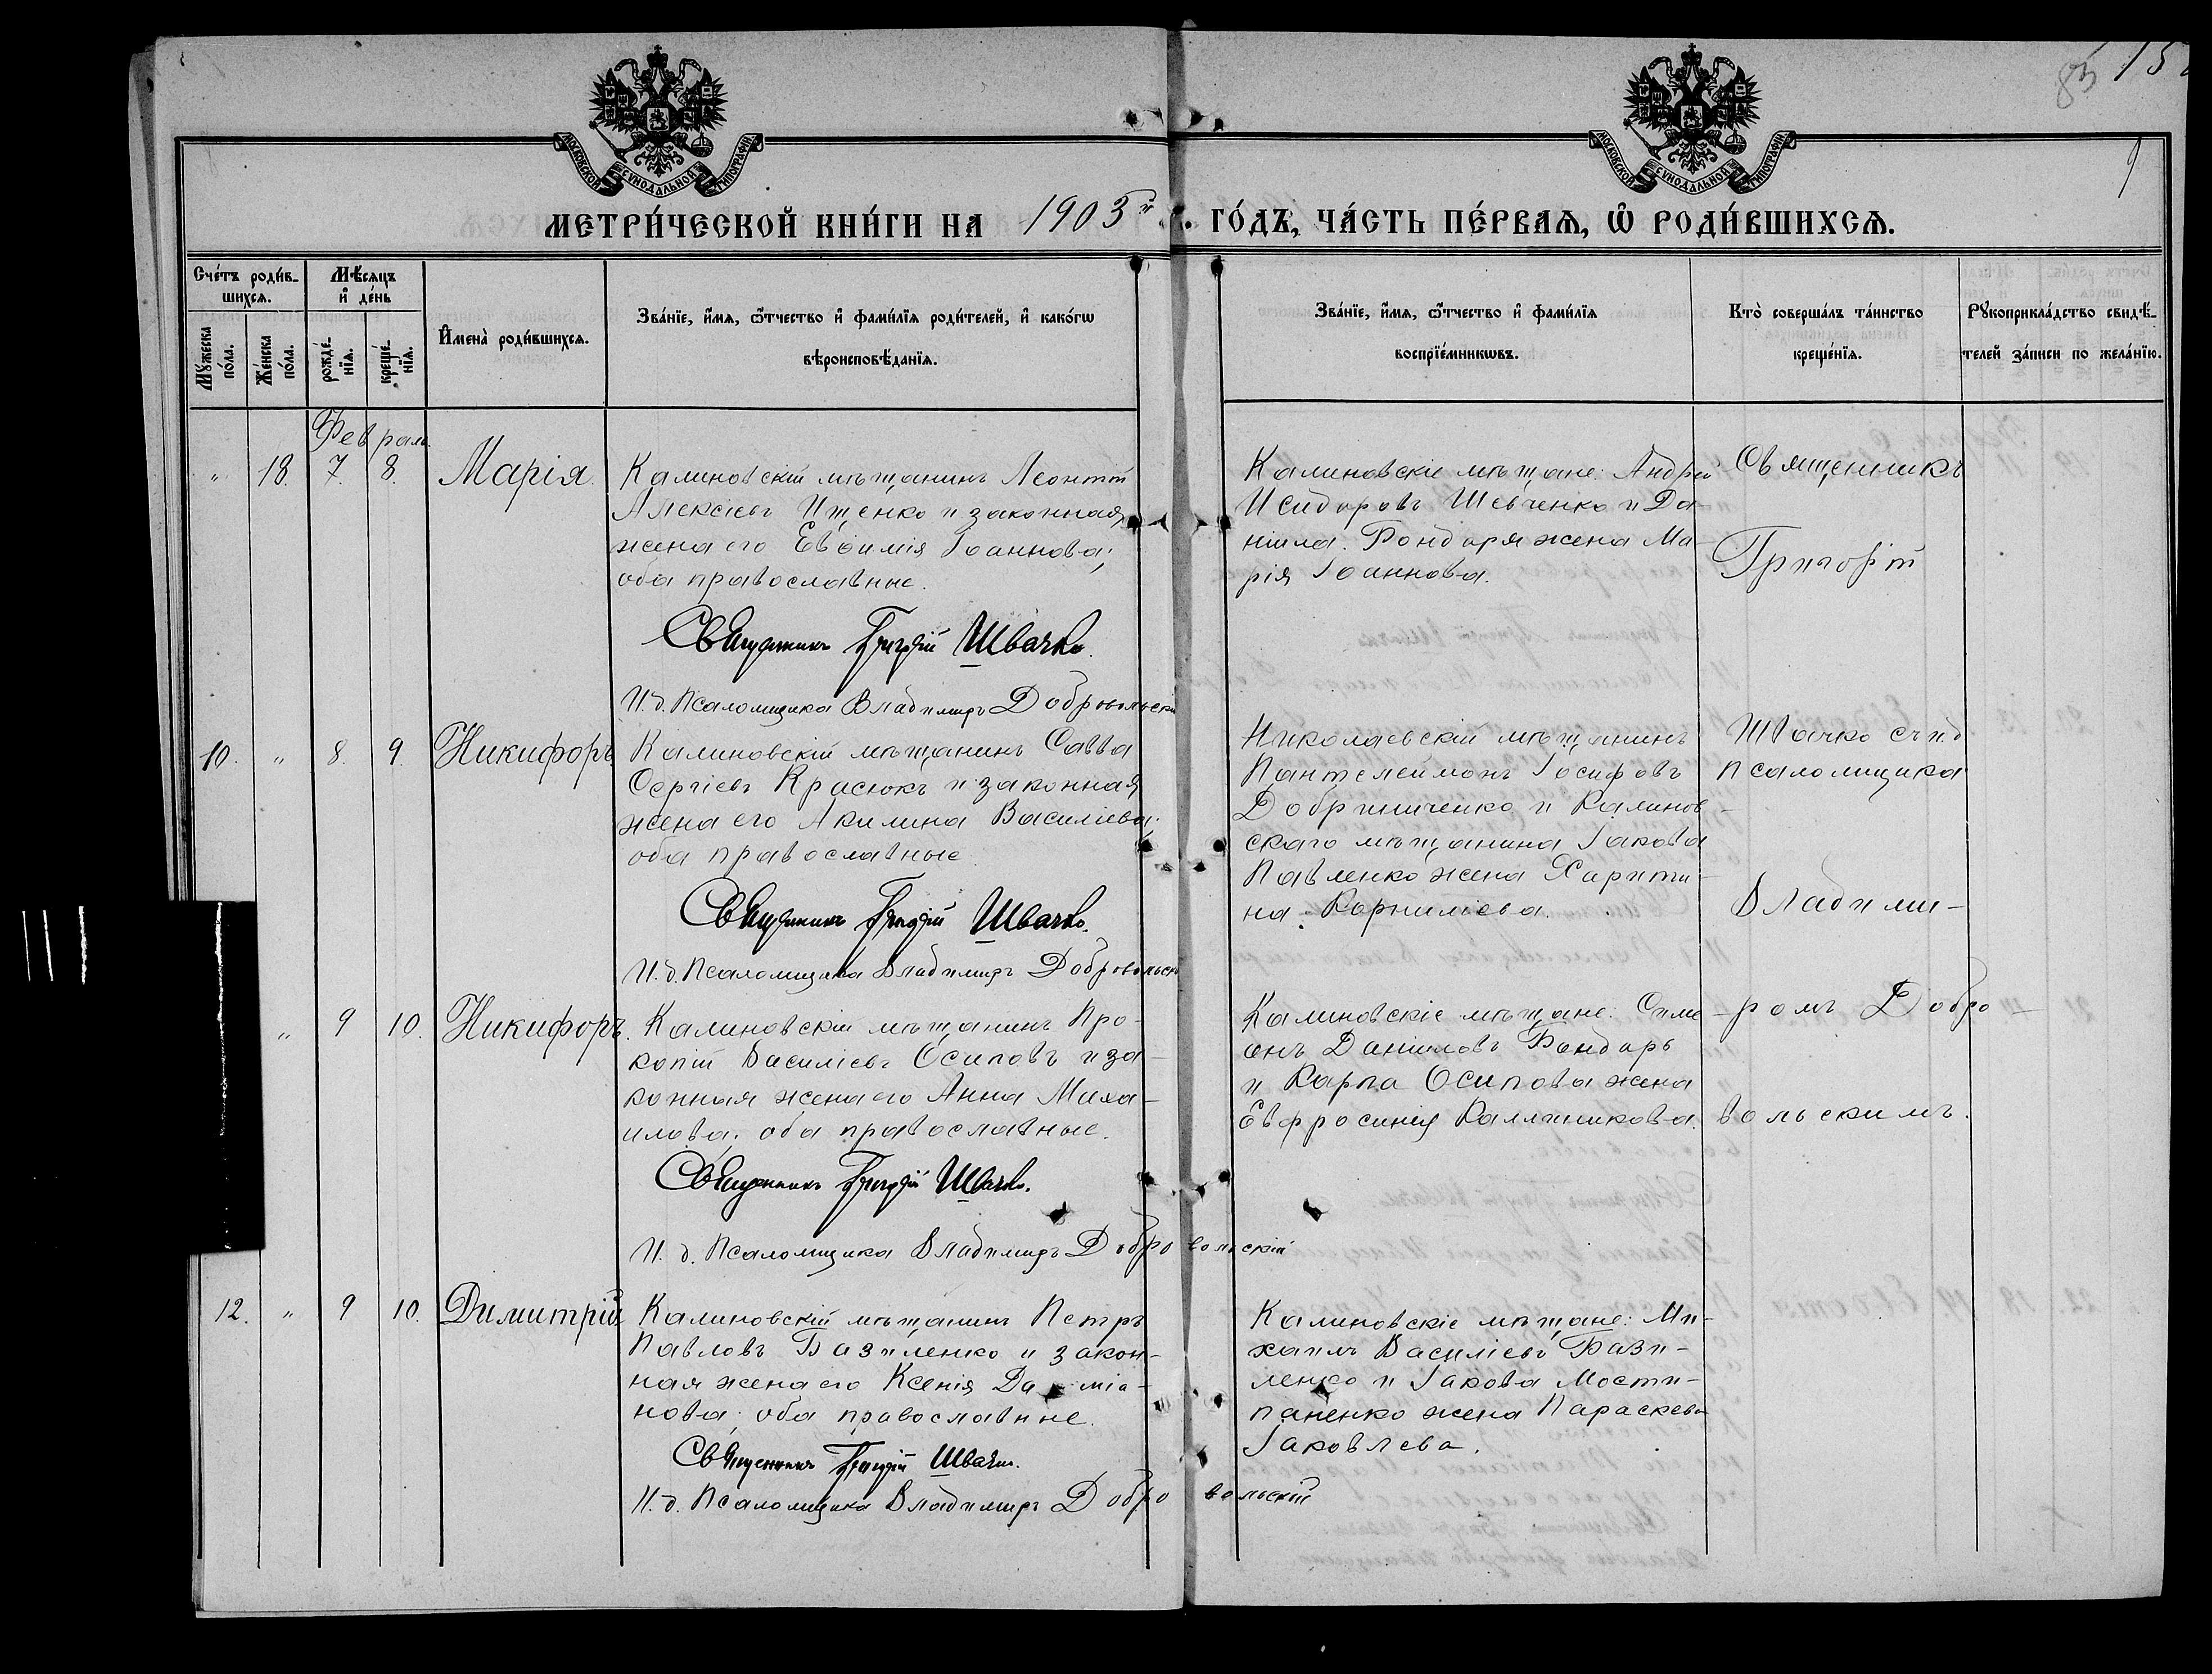 83 15
МОСКОВСКОЙ СУНОДАЛЬНОЙ ТИПОГРАФІИ.
МОСКОВСКОЙ СУНОДАЛЬНОЙ ТИПОГРАФІИ.
МЕТРИ́ЧЕСКОЙ КНИ́ГИ НА 1903й ГО́ДЪ, ЧА́СТЬ ПЕ́РВАѦ, Ѡ҆ РОДИ́ВШИХСѦ.
Сче́тъ роди́в-
шихсѧ.
Мѣ́сѧцъ
и҆ де́нь
Мꙋ́жеска
по́ла.
Же́нска
по́ла.
рожде́-
нїѧ.
креще́-
нїѧ.
И҆мена̀ роди́вшихсѧ.
Зва́нїе, и҆́мѧ, ѻ҆́тчество и҆ фами́лїѧ роди́телей, и҆ како́гѡ
вѣроисповѣ́данїѧ.
Зва́нїе, и҆́мѧ, ѻ҆́тчество и҆ фами́лїѧ
воспрїе́мникѡвъ.
Кто̀ соверша́лъ та́инство
креще́нїѧ.
Рꙋкоприкла́дство свидѣ́-
телей за́писи по жела́нїю.
Февраль.
" 18. 7. 8. Марія.
Калиновскій мѣщанинъ Леонтій
Алексіевъ Ищенко и законная
жена его Евѳимія Іоаннова;
оба православные.
Священникъ Григорій Швачко.
И. д. Псаломщика Владимиръ Добровольскій
Калиновскіе мѣщане: Андрей
Исидоровъ Шевченко и Да-
ніила Бондаря жена Ма-
рія Іоаннова.
Священникъ
Григорій
10. " 8. 9. Никифоръ
Калиновскій мѣщанинъ Савва
Сергіевъ Красюкъ и законная
жена его Акилина Василіева;
оба православные
Священникъ Григорій Швачко.
И. д. Псаломщика Владимиръ Добровольскій
Николаевскій мѣщанинъ
Пантелеймонъ Іосифовъ
Добриниченко и Калинов-
скаго мѣщанина Іакова
Павленко жена Харити-
на Корниліева.
Швачко съ и.д
псаломщика
Владими-
" 9 10. Никифоръ.
Калиновскій мѣщанинъ Про-
копій Василіевъ Осиповъ и за-
конная жена его Анна Миха-
илова; оба православные.
Священникъ Григорій Швачко.
И. д. Псаломщика Владимиръ Добровольскій
Калиновскіе мѣщане: Симе-
онъ Даніиловъ Бондарь
и Карпа Осипова жена
Евфросинія Каллиникова.
ромъ Добро-
вольскимъ.
12. " 9 10. Димитрій
Калиновскій мѣщанинъ Петръ
Павловъ Базиленко и закон-
ная жена его Ксенія Даміа-
нова; оба православные.
Священникъ Григорій Швачко.
И. д. Псаломщика Владимиръ Добровольскій
Калиновскіе мѣщане: Ми-
хаилъ Василіевъ Бази-
ленко и Іакова Мости-
паненко жена Параскева
Іаковлева.